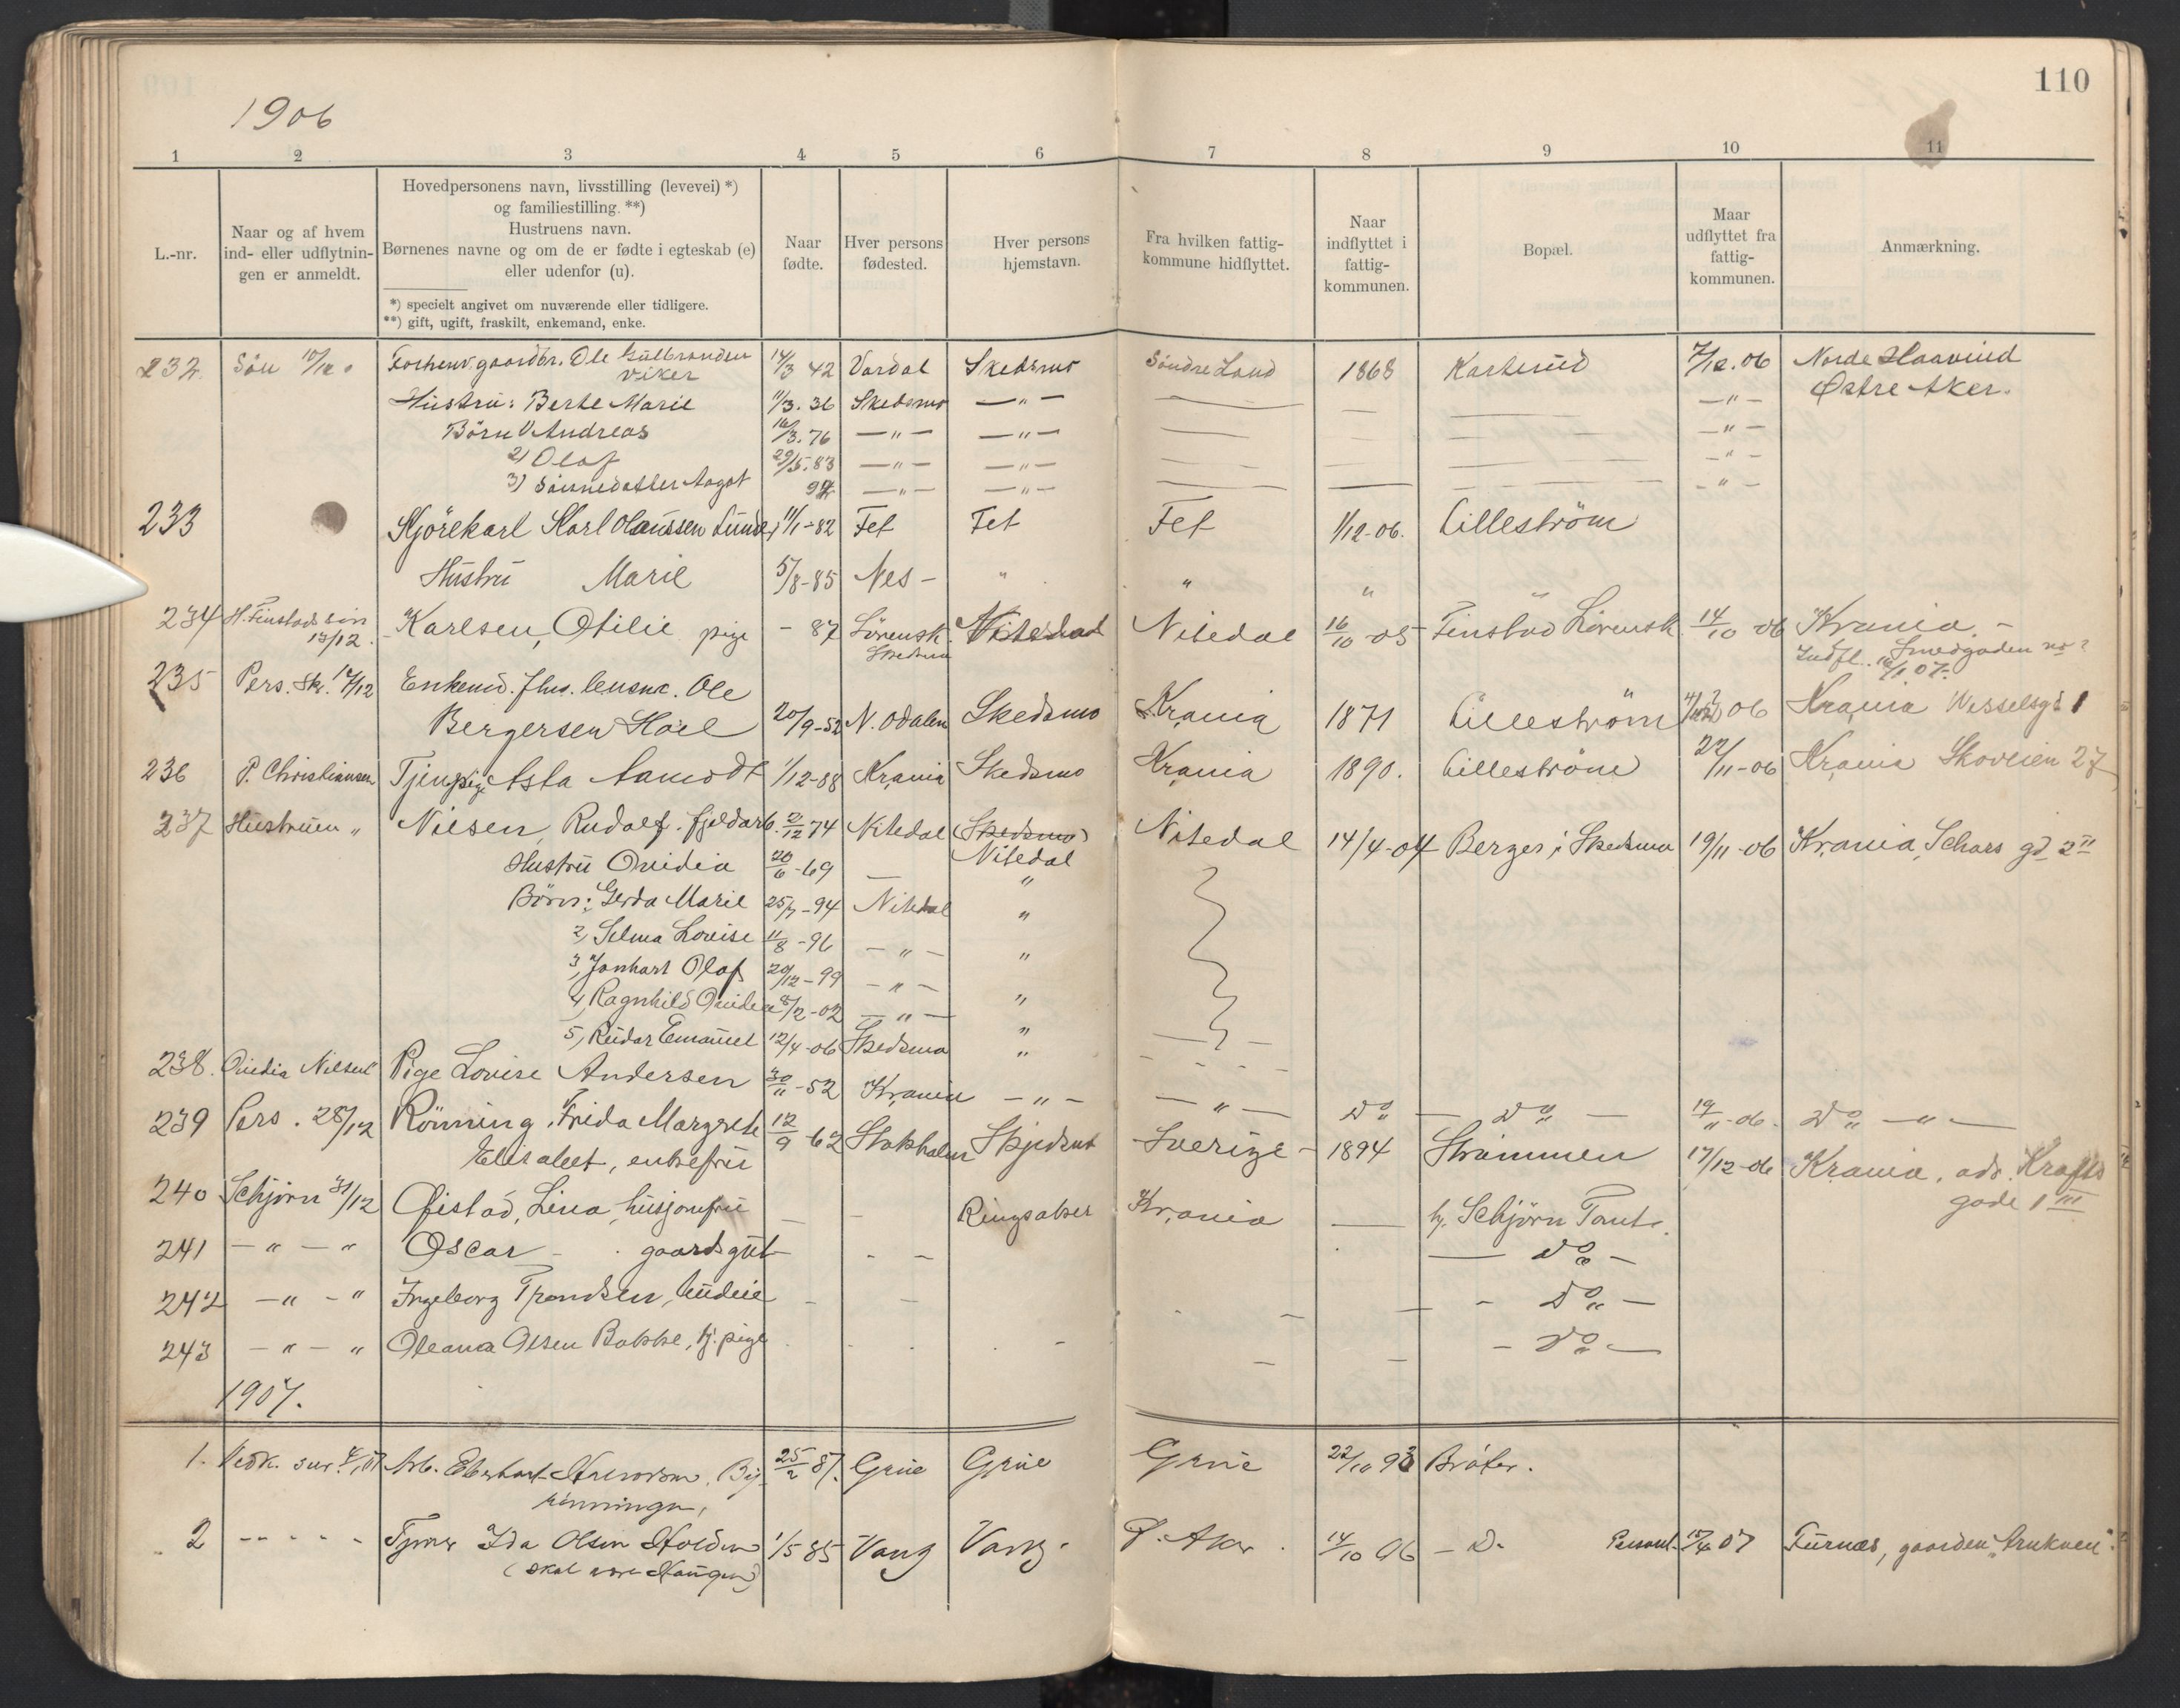 110
1906
1 2 3 4 5 6 7 8 9 10 11
L.-nr.
Naar og af hvem
ind- eller udflytnin-
gen er anmeldt.
Hovedpersonens navn, livsstilling (levevei) *)
og familiestilling. **)
Hustruens navn.
Børnenes navne og om de er fødte i egteskab (e)
eller udenfor (u).
*) specielt angivet om nuværende eller tidligere.
**) gift, ugift, fraskilt, enkemand, enke.
Naar
fødte.
Hver persons
fødested.
Hver persons
hjemstavn.
Fra hvilken fattig-
kommune hidflyttet.
Naar
indflyttet i
fattig-
kommunen.
Bopæl.
Maar
udflyttet fra
fattig-
kommunen.
Anmærkning.
232. Søn gaardbr. Ole Gulbrandsen 14/3 42 Vardal Skedsmo Søndre Land 1868 Karterud 7/12.06 Nordre Haavind
Viker Østre Aker.
Hustru: Berte Marie 11/3.36 Skedsmo —"— —"—
Børn 1) Andreas 16/3.76 —"— —"— —"—
2) Olaf 29/5.83 —"— —"— —"—
3) Sønnedatter Aagot —"— —"— —"—
233 Kjörekarl Karl Olaussen Lunde, 11/1-82 Fet Fet Fet 1/12-06. Lilleström
Hustru Marie 5/8-85 Nes - " " "
234 H. Finstads søn Karlsen, Otilie pige - 87 Lörensk. Nitedal Nitedal 16/10-05 Finstad Lörensk. 14/10 06 Krania. -
13/12. Skedsmo Smedgaden no ?
Indfl. 16/1 07.
235 Pers. Sk. 17/12 Enkemd. Ole
Bergersen Hoel 20/9-52 N. Odalen Skedsmo Krania 1871 Lilleström 06 Krania Wesselsgd 1
236 P. Christiansen Tjenpige Asta Aamodt 1/12-88 Krania Skedsmo Krania 1890. Lilleström 22/11-06 Krania Skoveien 27
237 Hustruen " Nilsen, Rudolf. fjeldarb. 74 Nitedal (Skedsmo) Nitedal 14/4-04 Berger i Skedsmo 19/11-06 Krania, Schous gd 2 II
Nitedal
Hustru Ovidia 20/6-69 — "
Börn: Gerda Marie 25/7-94 Nitedal "
2, Selma Lovise 11/8-96 —"— "
3, Jonhart Olaf 20/12-99 —"— "
4, Ragnhild Ovidia 8/2-02 —"— "
5, Reidar Emanuel 12/4-06 Skedsmo "
238. Ovidia Nilsen Pige Lovise Andersen 30/11-52 Krania —"— —"— Do — Do — 19/11-06. Do —"—
239 Pers. 28/12 Rönning, Frida Margrete 12/9 62 Stokholm Skjedsmo Sverige - 1894 Strömmen 17/12-06 Krania, adr. Krafts
Elisabet, enkefru gade 1 III
240 Schjörn 31/12 Øistad, Lina, husjomfru — — Ringsaker Krania — hj. Schjörn Tant.
241 —"—" Oscar — gaardsgut — — — Do —
242 —"—" Ingeborg Trondsen, budeie — — — Do —
243 —"—" Oleana Olsen Bakke, tj. pige — Do —
1907.
1. Vedk. Arb. Eberhart 25/2 87. Grue Grue Grue 22/10 93 Bråter.
2 - - - - Ida Olsen Holden 1/5 85 Vang Vang. Ø. Aker. 14/10 06 — D. Personl. 07 Furnes, gaarden
(skal være Haugen)